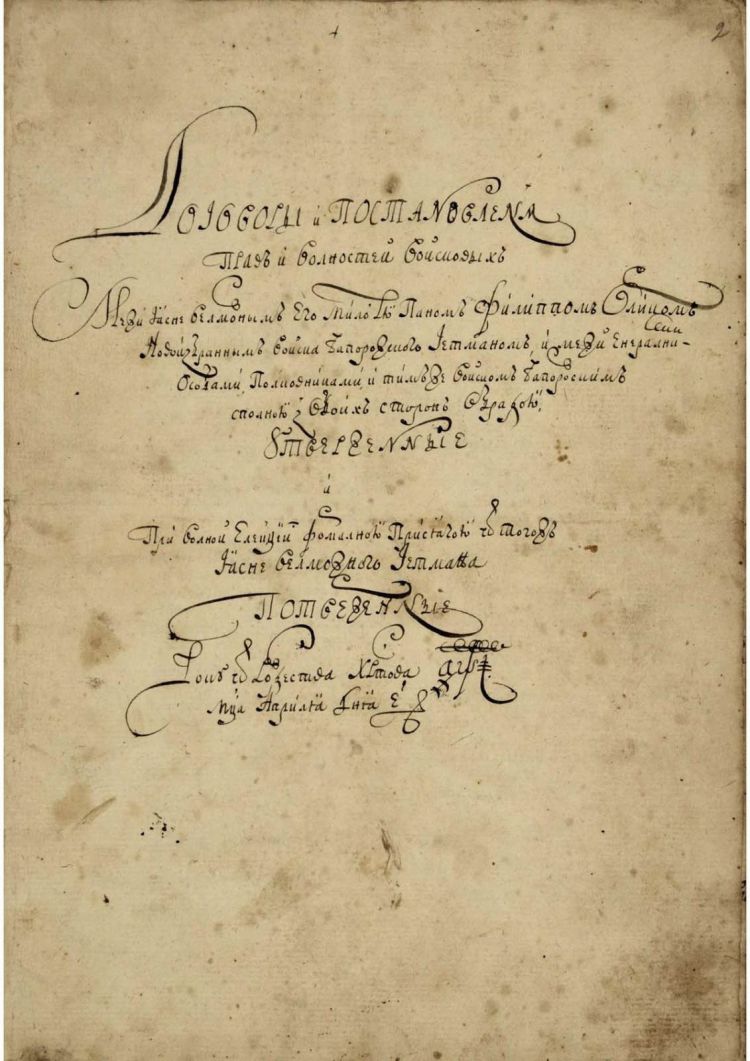 2
Договоры и Постановлена
Правъ и волностей войсковыхъ
Межи Ясне велможнымъ Его Милостю Паномъ Филиппомъ Орликомъ
Новоизбраннымъ войска Запорозского Гетманомъ, и межи Енерални-
ми
Особами Полковниками, и тимъже войскомъ Запорозскимъ
сполною з обоихъ сторонъ обрадою,
Утверженные
и
При волной Елекций формалною Присягою ѿ тогожъ
Ясне велможного Гетмана
Потвержеенные
Року ѿ Рожества Христова аψі
Мца Априля дня е҃